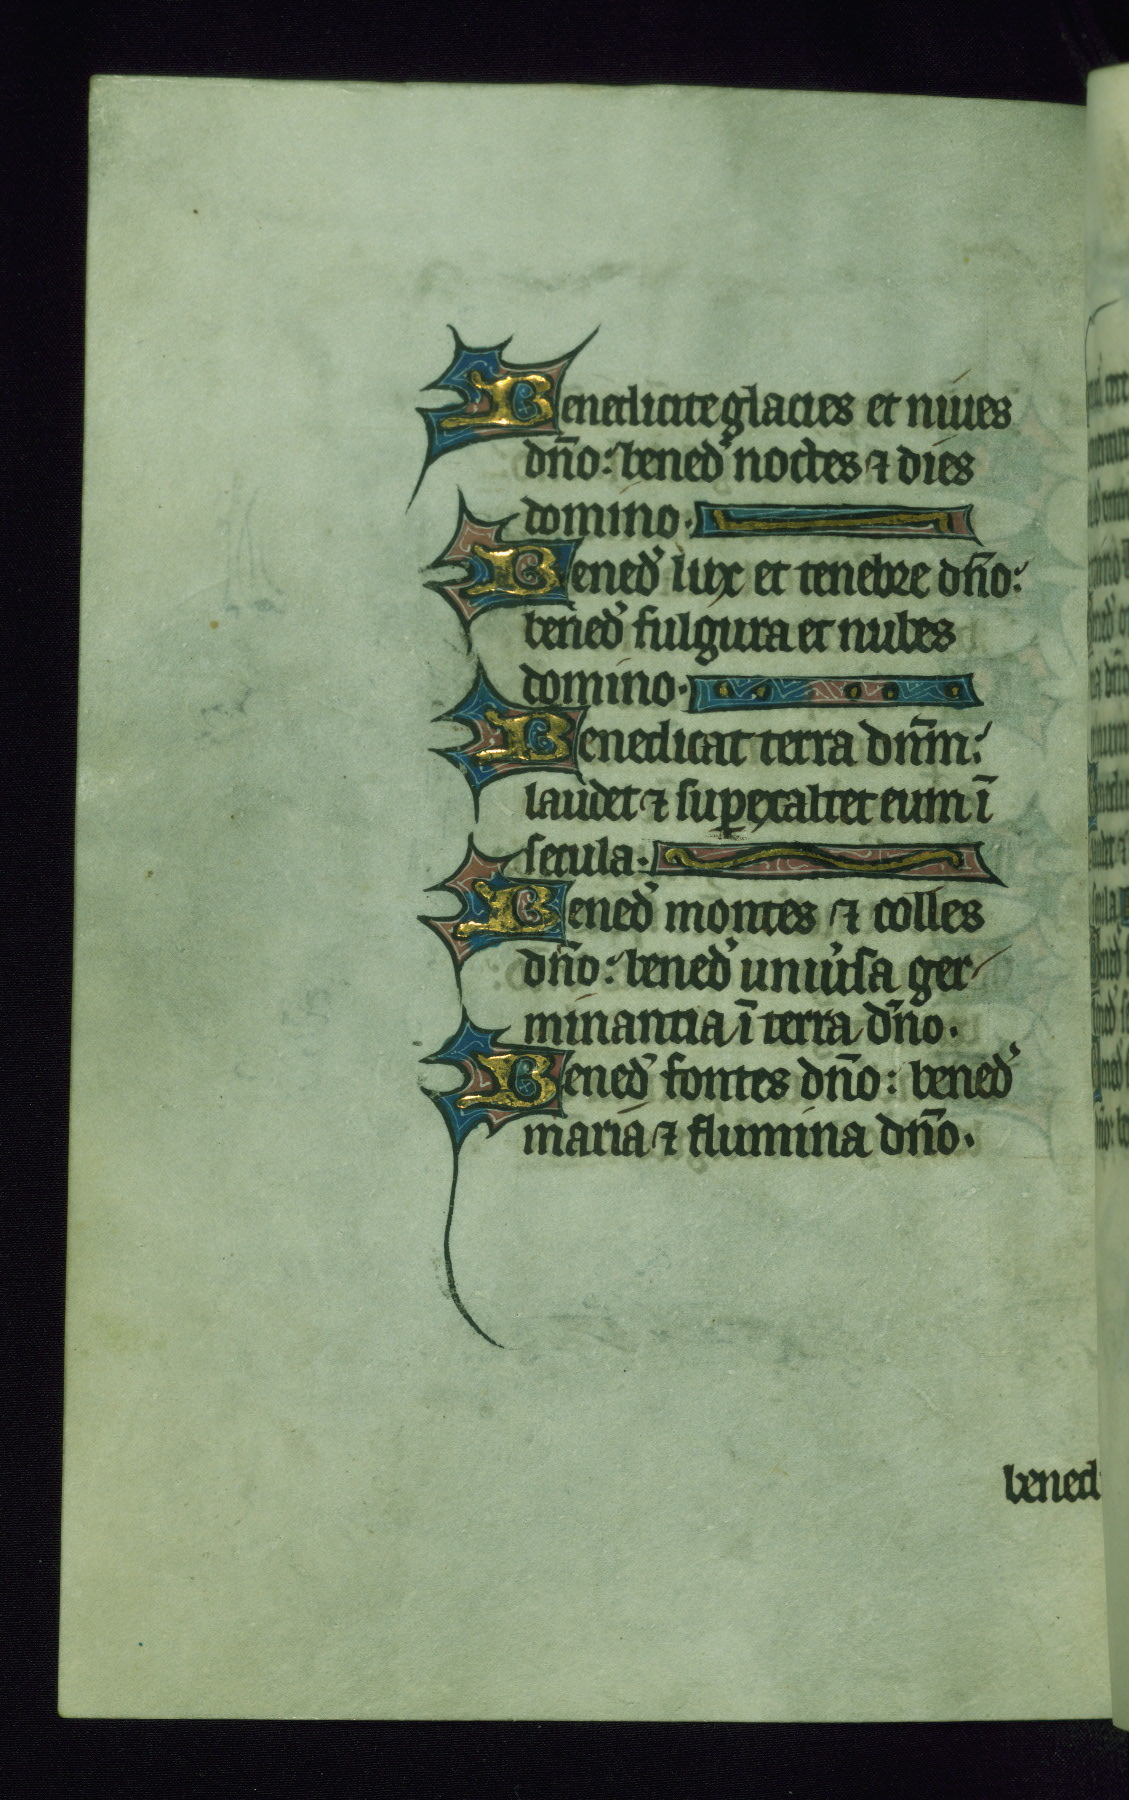 Benedicite glacies et niues
dn̄o: bened̛ noctes ⁊ dies
domino.
Bened̛ lux et tenebre dn̄o:
bened̛ fulgura et nubes
domino.
Benedicat terra dn̄m:
laudet ⁊ suꝑexaltet eum ī
secula.
Bened̛ montes ⁊ colles
dn̄o: bened̛ uniưsa ger-
minantia ī terra dn̄o.
Bened̛ fontes dn̄o: bened̛
maria ⁊ flumina dn̄o.
bened